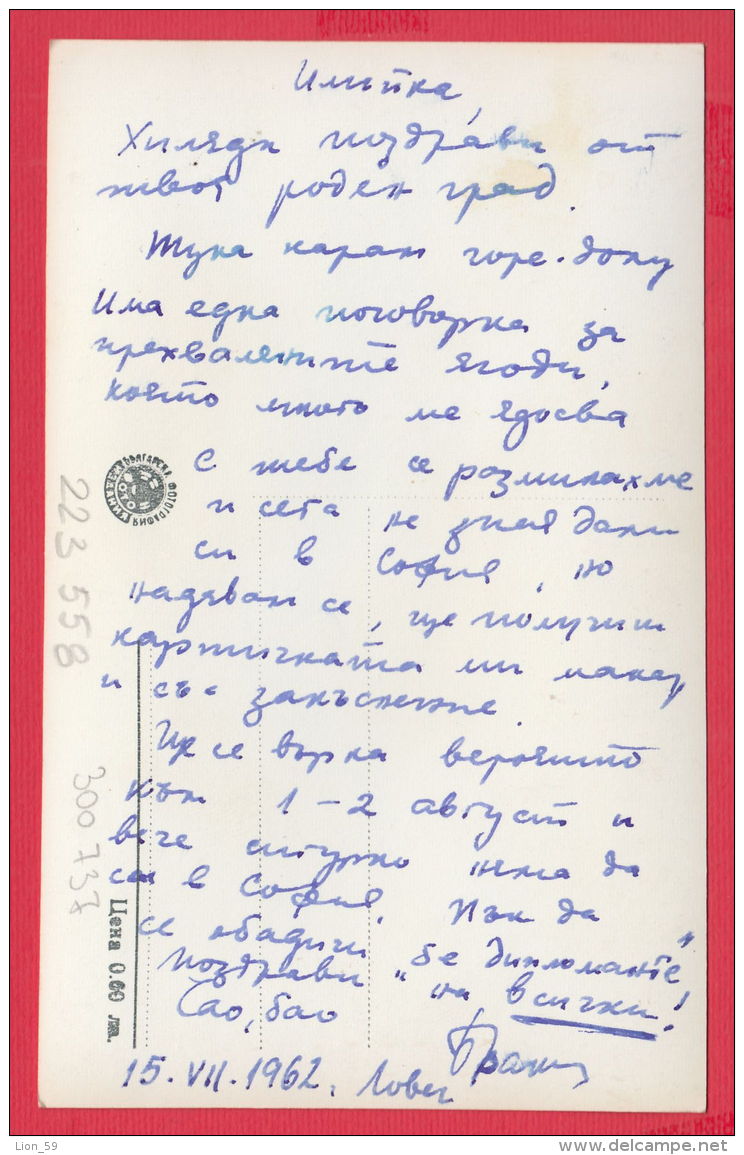 Илийка,
Хиляди поздрави от
твоя роден град.
Тука карам горе-долу
Има една поговорка за
прехвалените ягоди,
която много ме ядосва
С тебе се розминахме
и сега не зная дали
си в София, но
надявам се, ще получиш
картичката ми макар
и със закъснение.
Ще се върна вероятно
към 1-2 август и
вече сигурно няма да
си в София. Пък да
се обадиш „бе дипломанте"
Поздрави на всички!
Сао, бао
15.VII.1962. Ловеч
БЪЛГАРСКА ФОТОГРАФИЯ
Цена 0.60 лв.
223 558
300 737
Lion_59
www.delcampe.net